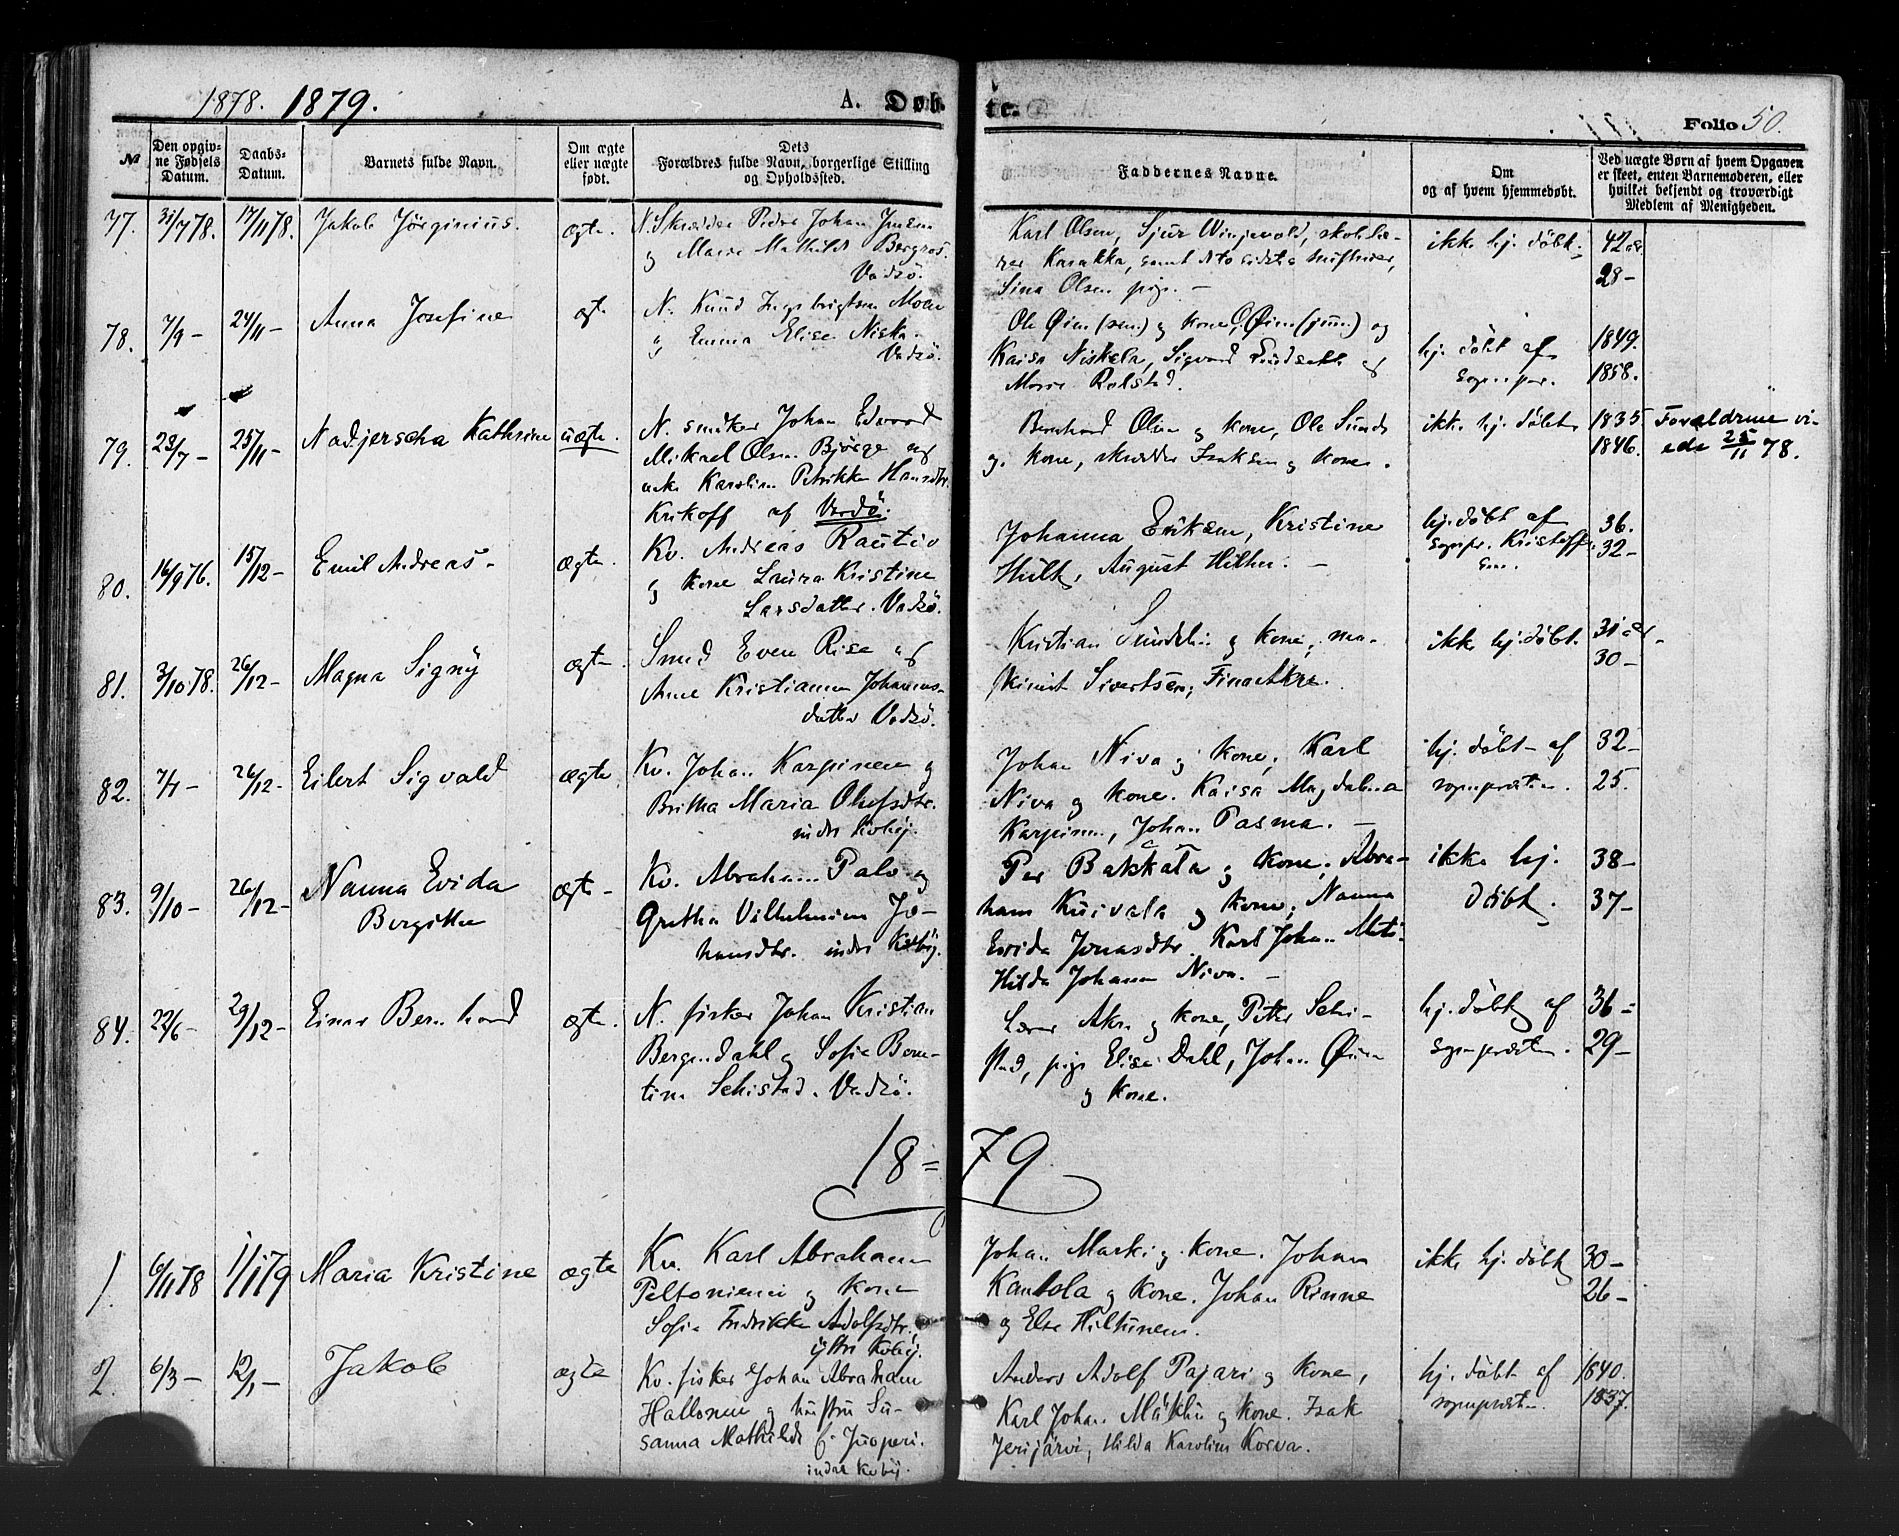 1878. 1879.
A. Døb-
te.
Folio 50.
№
Den opgiv-
ne Fødsels
Datum.
Daabs-
Datum.
Barnets fulde Navn.
Om ægte
eller uægte
født.
Dets
Forældres fulde Navn, borgerlige Stilling
og Opholdssted.
Faddernes Navne.
Om
og af hvem hjemmedøbt.
Ved uægte Børn af hvem Opgaven
er skeet, enten Barnemoderen, eller
hvilket bekjendt og troværdigt
Medlem af Menigheden.
77. 31/7 78. 17/11 78. Jakob Jörginius. ægte.
N. Skrædder Peder Johan Jensen
og Marie Mathilde Bergros.
Vadsö.
Karl Olsen, Sjur Winjevold, skolelæ-
rer Karakka, samt dito sidstes hustruer,
Sina Olsen pige. —
ikke hj. döbt.
42 aar.
28 —
78. 7/9 — 24/11 — Anna Josefine ægte
N. Knud Ingebrigtsen Moen
og Emma Elise Niska.
Vadsö.
Ole Øien (sen.) og kone, O. Øien (jun.) og
Kaisa Niskala, Sigvard Lundsæth og
Marie Rolstad.
hj. döbt af
sognepr.
1849.
1858.
79. 28/7 — 25/11 — Nadjerscha Kathrine uægte.
N. snedker Johan Edvard
Mikael Olsen Björge og
enke Karoline Petrikke Hansdtr.
Krikoff af Vardö.
Bernhard Olsen og kone, Ole Sunds
og kone, skrædder Isaksen og kone.
ikke hj. döbt
1835
1846.
Forældrene vi-
ede 25/11 78.
80. 16/9 76. 15/12 — Emil Andreas — ægte.
Kv. Andreas Rautio
og kone Laura Kristine
Larsdatter. Vadsö.
Johanna Eriksen, Kristine
Hult, August Hilthu. —
hj. döbt af
sognpr. Kristoffer
sen.
36.
32 —
81. 3/10 78. 26/12 — Magna Signy ægte
Smed Even Rise og
Anne Kristianne Johannes-
datter Vadsö.
Kristian Sundelin og kone, ma-
skinist Sivertsen, Fina Akre.
ikke hj. döbt.
31 aar
30 —
82. 26/12 — Eilert Sigvald ægte
Kv. Johan Karpinen og
Britha Maria Olofsdtr.
indre Kvbÿ.
Johan Niva og kone, Karl
Niva og kone. Kaisa Magdalena
Karpinen, Johan Pasma. —
hj. döbt af
sognepræsten.
32 —
25.
83. 9/10 — 26/12 — Nanna Evida
Bergitte
ægte —
Kv. Abraham Palo og
Gretha Vilhelmine Jo-
hansdtr. indre Kvbÿ.
Per Bakkala og kone, Abra-
ham Kuivala og kone, Nanna
Evida Jonasdtr. Karl Johan Mati.
Hilda Johanna Niva. —
ikke hj.
döbt.
38 —
37 —
84. 22/6 — 29/12 — Einar Bernhard ægte.
N. fisker Johan Kristian
Bergendahl og Sofie Bern-
tine Sehistad. Vadsö.
Lærer Akre og kone, Peter Sehi-
stad, pige Elise Dahl, Johan Øien
og kone.
hj. döbt af
sognepræsten.
36 =
29 —
18 = 79
1. 6/11 78 1/1 79 Maria Kristine ægte
Kv. Karl Abraham
Peltoniemi og kone
Sofia Fredrikke Adolfsdtr.
ÿtre Kvbÿ.
Johan Marki og kone. Johan
Kantola og kone. Johan Rinne
og Else Hiltunen.
ikke hj. döbt
30 —
26 —
2. 6/3 — 12/1 — Jakob ægte
Kv. fisker Johan Abraham
Hallonen og hustru Su-
sanna Mathilde f. Juoperi.
indre Kvbÿ.
Anders Adolf Pajari og kone,
Karl Johan Mäklin og kone. Isak
Jerijärvi, Hilda Karoline Korva.
hj. döbt af
sognepræsten.
1840.
1837.